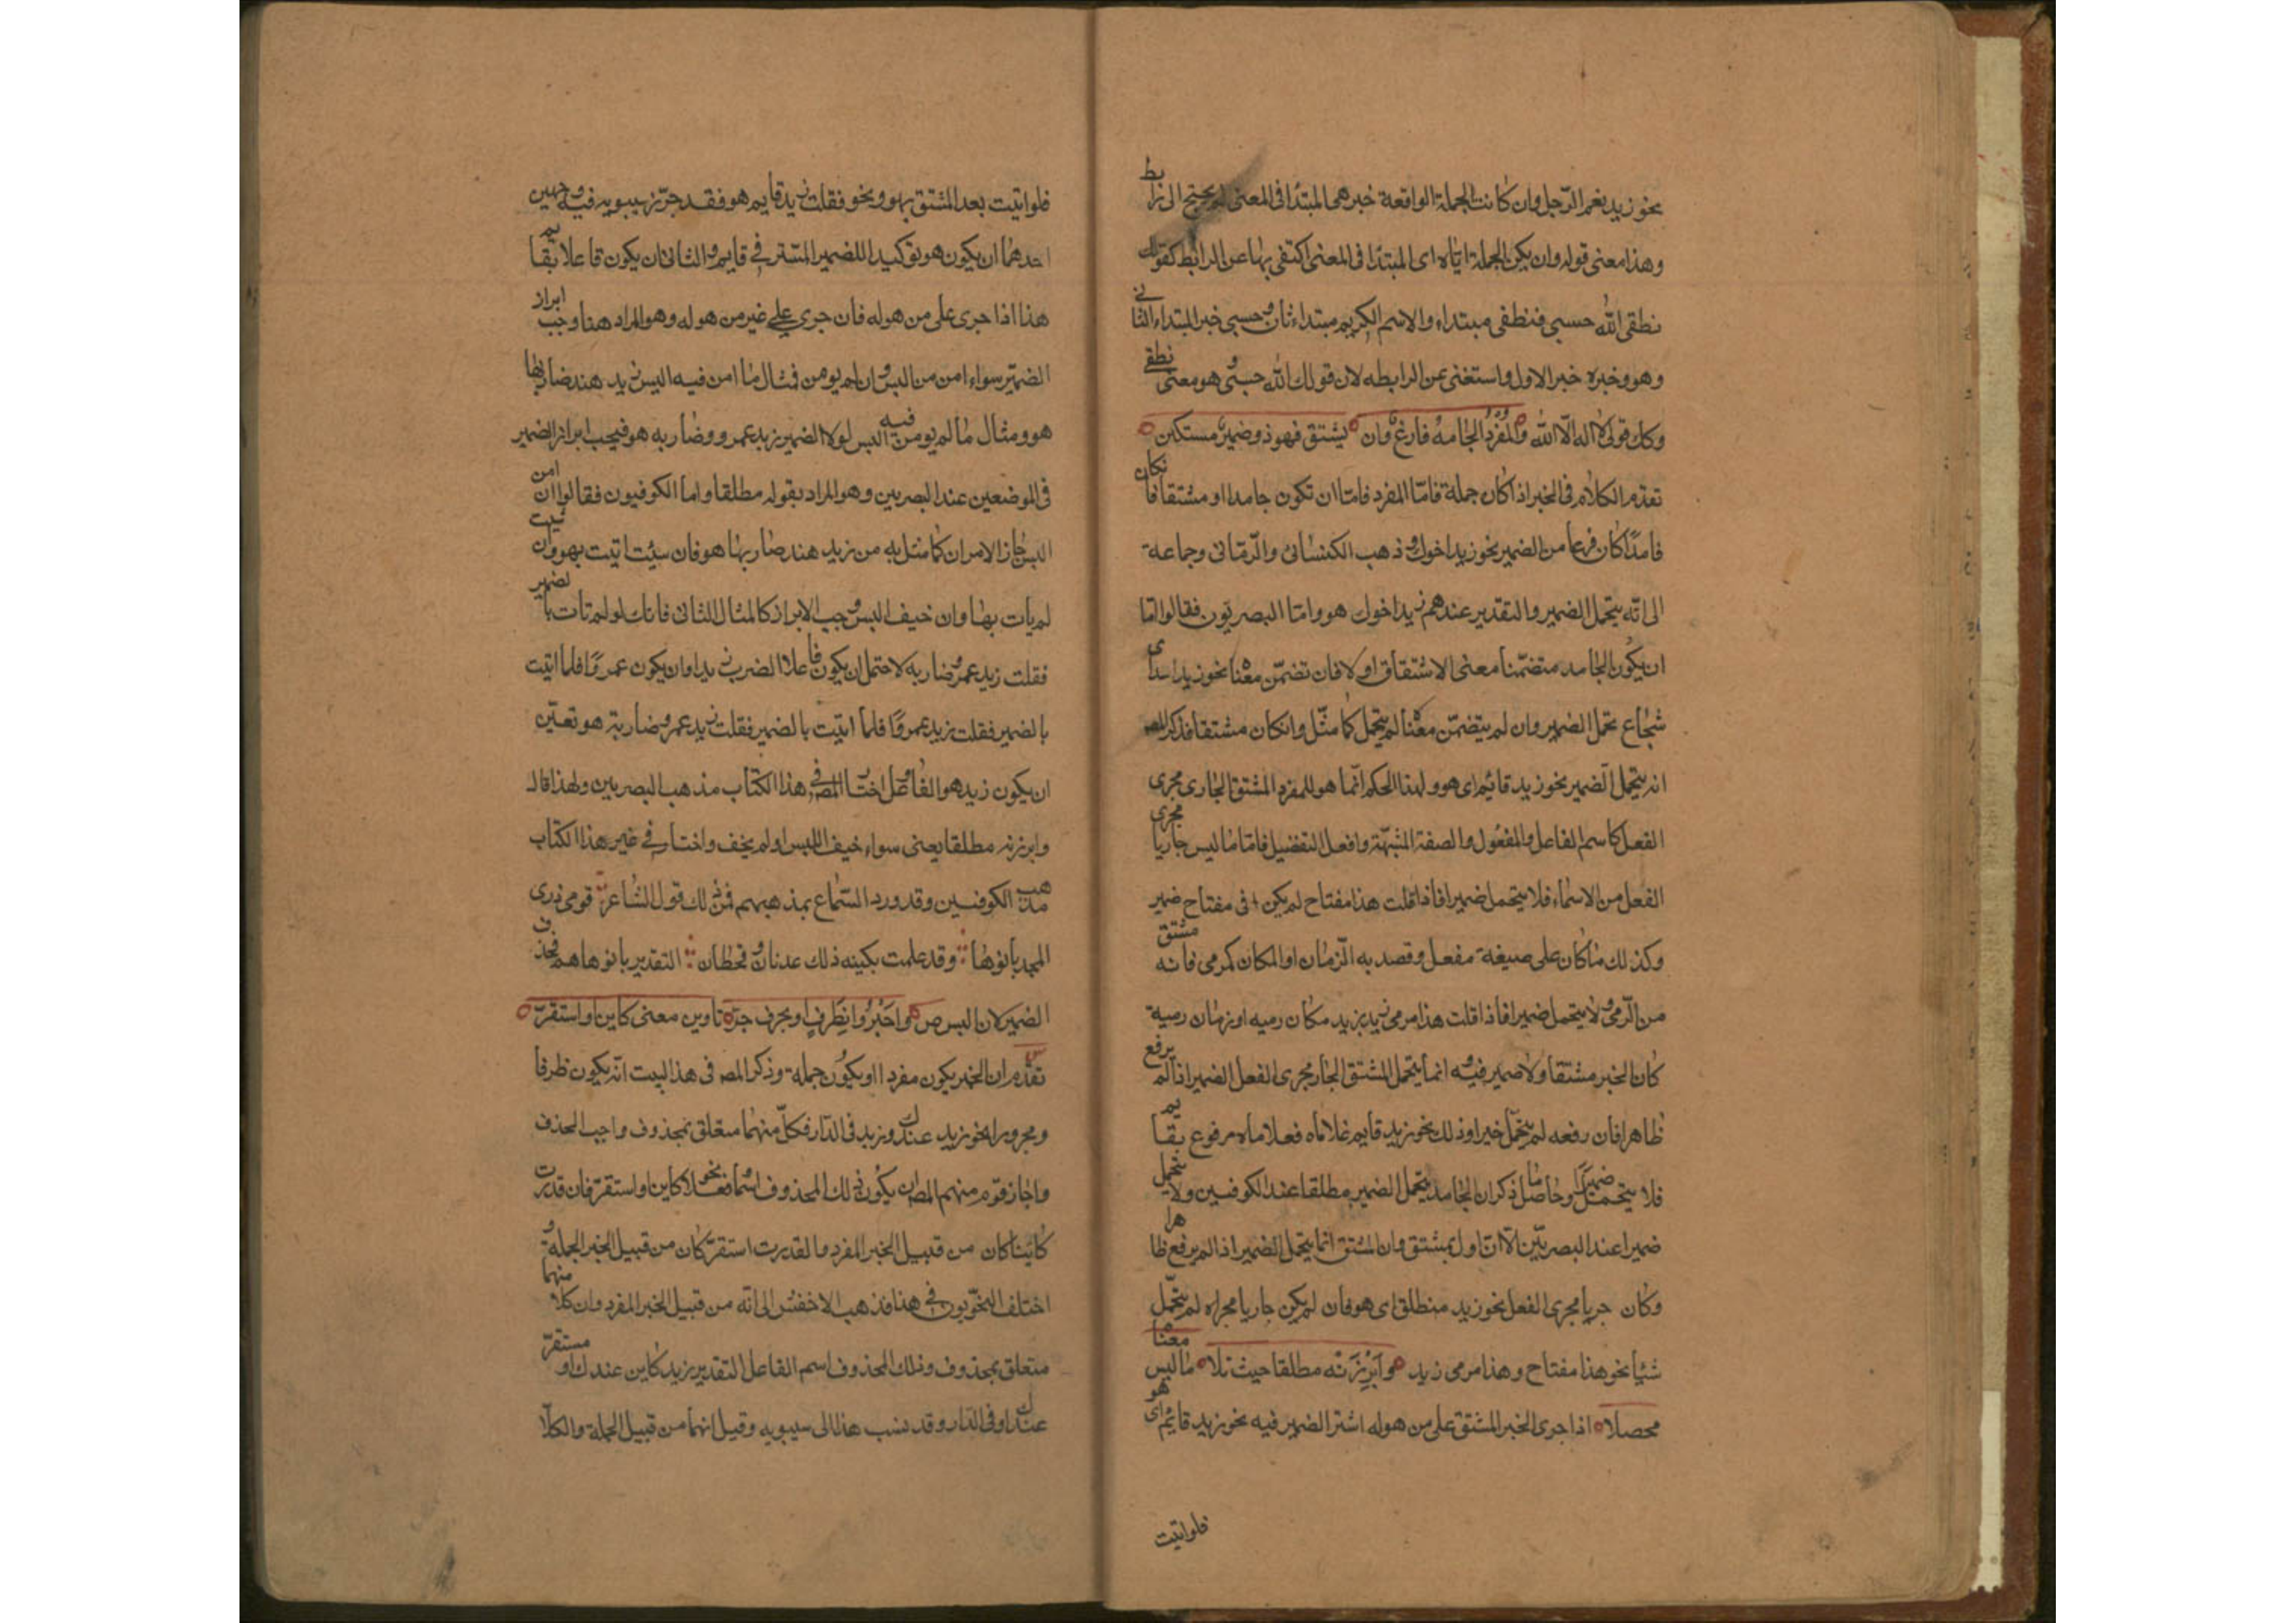 نحو زيد نعم الرّجل وان كانت الجملة الواقعة خبرهى المبتدأ فى المعنى لم يحتج الى رابط
وهذا معنى قوله وان يكن الجملة ايّاه اى المبتدأ فى المعنى اكتفى بها عن الرابط كقولك
نطقى الله حسبى فنطقى مبتداء والاسم الكريم مبتداء ثان وحسبى خبر المبتداء الثانى
وهو وخبره خبر الاول واستغنى عن الرابطه لان قولك الله حسبى هو معنى نطقى
وكك قولى لا اله الّا الله والمُفْرَدُ الجامدُ فارغ وان يشتق فهو ذو ضمير مستكن
تقدم الكلام فى الخبر اذا كان جملة فامّا المفرد فامّا ان تكون جامدا او مشتقا فان كان
جامدًا كان فرعا من الضمير نحو زيد اخوك وذهب الكسائى والرّمّانى وجماعة
الى انّه يتحمل الضمير والتقدير عندهم زيد اخوك هو وامّا البصريّون فقالوا امّا
ان يكون الجامد متضمّنا معنى الاشتقاق اولا فان تضمّن معناه نحو زيد اسد اى
شجاع تحمل الضمير وان لم يتضمّن معناه لم يتحمل كما مثّل وانكان مشتقا فذكر المص
انه يتحمل الضمير نحو زيد قائم اى هو وهذا الحكم انّما هو للمفرد المشتق الجارى مجرى
الفعل كاسم الفاعل والمفعول والصفة المشبّهة وافعل التفضيل فامّا ما ليس جاريا مجرى
الفعل من الاسماء فلا يتحمل ضميرا فاذا قلت هذا مفتاح لم يكن فى مفتاح ضمير
وكذلك ما كان على صيغة مفعل وقصد به الزّمان او المكان كمرمى فانه مشتق
من الرّمى ولا يتحمل ضميرا فاذا قلت هذا مرمى زيد يزيد مكان رميه او زمان رمية
كان الخبر مشتقا ولا ضمير فيه انما يتحمل المشتق الجار مجرى الفعل الضمير اذا لم يرفع
ظاهرا فان رفعه لم يتحمّل خيرا وذلك نحو زيد قايم غلاماه فعلاماه مرفوع بقايم
فلا يتحمل ضميرًا وحاصل ما ذكر ان الجامد يتحمل الضمير مطلقا عند الكوفيين ولا يتحمل
ضميرا عند البصريّين الّا ان تاول بمشتق وان المشتق انّما يتحمل الضمير اذا لم يرفع ظاهرا
وكان جريا مجرى الفعل نحو زيد منطلق اى هو فان لم يكن جاريا مجراه لم يتحمّل
شيأ نحو هذا مفتاح وهذا مرمى زيد وَاَبْرِزَنْه مطلقا حيث تلا ما ليس معناه
محصلا اذا جرى الخبر المشتق على من هو له استتر الضمير فيه نحو زيد قايم اى هو
فلو اتيت
فلو اتيت بعد المشتق بهو ونحو فقلت زيد قايم هو فقد جوّز سيبويه فيه وجهين
احدهما ان يكون هو توكيدا للضمير المستتر فى قايم والثانى ان يكون فاعلا بقايم
هذا اذا جرى على من هو له فان جرى على غير من هو له وهو المراد هنا وجب ابراز
الضمير سواء امن من البس وان لم يومن فمثال ما امن فيه اليس زيد هند ضاربها
هو ومثال ما لم يومن فيه البس لولا الضمير زيد عمرو وضاربه هو فيجب ابراز الضمير
فى الموضعين عند البصريين وهو المراد بقوله مطلقا واما الكوفيون فقالوا ان امن
البس جاز الامران كما مثل به من زيد هند ضاربها هو فان سئيت اتيت بهو وان شيت
لم يأت بها وان خيف البس وجب الابراز كالمثال الثانى فانك لو لم تأت بالضمير
فقلت زيد عمرو ضاربه لاحتمل ان يكون فاعلا الضرب زيدا وان يكون عمروًا فلما اتيت
بالضمير فقلت زيد عمروًا فلما اتيت بالضمير فقلت زيد عمرو ضاربة هو تعيّن
ان يكون زيد هو الفاعل واختار المص فى هذا الكتاب مذهب البصريين ولهذا قال
وابرزنه مطلقا يعنى سواء خيف اللبس او لم يخف واختار فى غير هذا الكتاب
مذهب الكوفيين وقد ورد السّماع بمذهبهم فمن ذلك قول الشاعر قومى ذرى
المجد بانوها وقد علمت بكينه ذلك عدنان وقحطان التقدير بانوها هم فحذف
الضمير لان البس ص وَاَخْبَرُوا بِظَرفٍ او بحرف جرّ ناوين معنى كاين او استقرّ
س تقدّم ان الخبر يكون مفردا او يكون جملة وذكر المص فى هذا البيت انّه يكون ظرفا
ومجرورا نحو زيد عندك وزيد فى الدّار فكلّ منهما متعلق بمحذوف واجب الحذف
واجاز قوم منهم المص ان يكون ذلك المحذوف اسما او فعلا نحو كاين او استقرّ فان قدرت
كائنا كان من قبيل الخبر المفرد وا لقدرت استقرّ كان من قبيل الخبر الجملة و
اختلف النحويون فى هذا فذهب الاخفش الى انّه من قبيل الخبر المفرد وان كلا منهما
متعلق بمحذوف وذلك المحذوف اسم الفاعل التقدير زيد كاين عندك او مستقرّ
عندك او فى الدّار وقد نسب هذا الى سيبويه وقيل انهما من قبيل الجملة والكلا